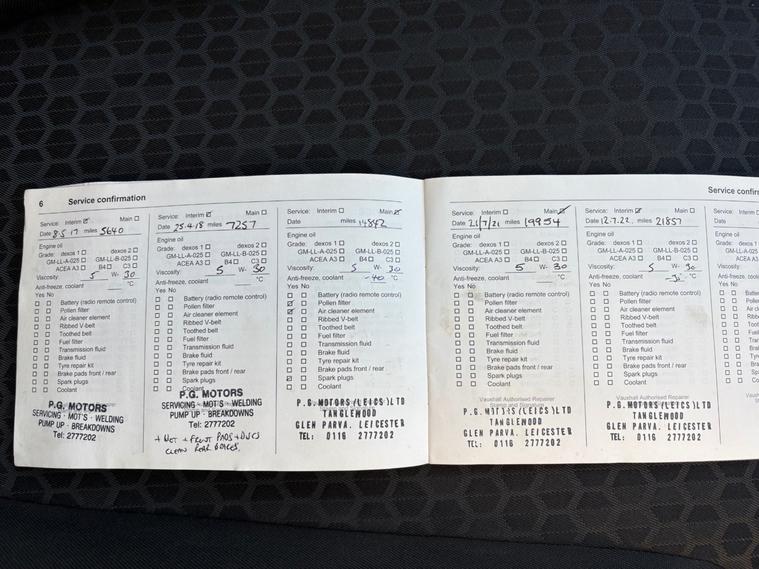 6 Service confirmation
Service: Interim ☑ Main ☐
Date 8.5.17 miles 5640
Engine oil
Grade: dexos 1 ☐ dexos 2 ☐
GM-LL-A-025 ☐ GM-LL-B-025 ☐
ACEA A3 ☐ B4 ☐ C3 ☐
Viscosity: 5 W- 30
Anti-freeze, coolant °C
Yes No
☐ ☐ Battery (radio remote control)
☐ ☐ Pollen filter
☐ ☐ Air cleaner element
☐ ☐ Ribbed V-belt
☐ ☐ Toothed belt
☐ ☐ Fuel filter
☐ ☐ Transmission fluid
☐ ☐ Brake fluid
☐ ☐ Tyre repair kit
☐ ☐ Brake pads front / rear
☐ ☐ Spark plugs
☐ ☐ Coolant
P.G. MOTORS
SERVICING - MOT'S - WELDING
PUMP UP - BREAKDOWNS
Tel: 2777202
Service: Interim ☑ Main ☐
Date 25.4.18 miles 7257
Engine oil
Grade: dexos 1 ☐ dexos 2 ☐
GM-LL-A-025 ☐ GM-LL-B-025 ☐
ACEA A3 ☐ B4 ☐ C3 ☐
Viscosity: 5 W- 30
Anti-freeze, coolant °C
Yes No
☐ ☐ Battery (radio remote control)
☐ ☐ Pollen filter
☐ ☐ Air cleaner element
☐ ☐ Ribbed V-belt
☐ ☐ Toothed belt
☐ ☐ Fuel filter
☐ ☐ Transmission fluid
☐ ☐ Brake fluid
☐ ☐ Tyre repair kit
☐ ☐ Brake pads front / rear
☐ ☐ Spark plugs
☐ ☐ Coolant
P.G. MOTORS
SERVICING - MOT'S - WELDING
PUMP UP - BREAKDOWNS
Tel: 2777202
+ MOT + FRONT PADS + DISCS
CLEAN REAR
Service: Interim ☐ Main ☑
Date miles 14842
Engine oil
Grade: dexos 1 ☐ dexos 2 ☐
GM-LL-A-025 ☐ GM-LL-B-025 ☐
ACEA A3 ☐ B4 ☐ C3 ☐
Viscosity: 5 W- 30
Anti-freeze, coolant -40 °C
Yes No
☐ ☐ Battery (radio remote control)
☑ ☐ Pollen filter
☑ ☐ Air cleaner element
☐ ☐ Ribbed V-belt
☐ ☐ Toothed belt
☐ ☐ Fuel filter
☐ ☐ Transmission fluid
☐ ☐ Brake fluid
☐ ☐ Tyre repair kit
☐ ☐ Brake pads front / rear
☑ ☐ Spark plugs
☐ ☐ Coolant
P.G. MOTORS (LEICS) LTD
TANGLEWOOD
GLEN PARVA. LEICESTER
TEL: 0116 2777202
Service confir
Service: Interim ☐ Main ☑
Date 21/7/21 miles 19954
Engine oil
Grade: dexos 1 ☐ dexos 2 ☐
GM-LL-A-025 ☐ GM-LL-B-025 ☐
ACEA A3 ☐ B4 ☐ C3 ☐
Viscosity: 5 W- 30
Anti-freeze, coolant °C
Yes No
☐ ☐ Battery (radio remote control)
☐ ☐ Pollen filter
☐ ☐ Air cleaner element
☐ ☐ Ribbed V-belt
☐ ☐ Toothed belt
☐ ☐ Fuel filter
☐ ☐ Transmission fluid
☐ ☐ Brake fluid
☐ ☐ Tyre repair kit
☐ ☐ Brake pads front / rear
☐ ☐ Spark plugs
☐ ☐ Coolant
Vauxhall Authorised Repairer
Stamp and Signature
P.G. MOTORS (LEICS) LTD
TANGLEWOOD
GLEN PARVA. LEICESTER
TEL: 0116 2777202
Service: Interim ☑ Main ☐
Date 12.7.22 miles 21857
Engine oil
Grade: dexos 1 ☐ dexos 2 ☐
GM-LL-A-025 ☐ GM-LL-B-025 ☐
ACEA A3 ☐ B4 ☐ C3 ☐
Viscosity: 5 W- 30
Anti-freeze, coolant °C
Yes No
☐ ☐ Battery (radio remote control)
☐ ☐ Pollen filter
☐ ☐ Air cleaner element
☐ ☐ Ribbed V-belt
☐ ☐ Toothed belt
☐ ☐ Fuel filter
☐ ☐ Transmission fluid
☐ ☐ Brake fluid
☐ ☐ Tyre repair kit
☐ ☐ Brake pads front / rear
☐ ☐ Spark plugs
☐ ☐ Coolant
Vauxhall Authorised Repairer
P.G. MOTORS (LEICS) LTD
TANGLEWOOD
GLEN PARVA. LEICESTER
TEL: 0116 2777202
Service:
Date
Engine oil
Grade: d
GM-LL-A
AC
Viscosity:
Anti-freeze, cool
Yes No